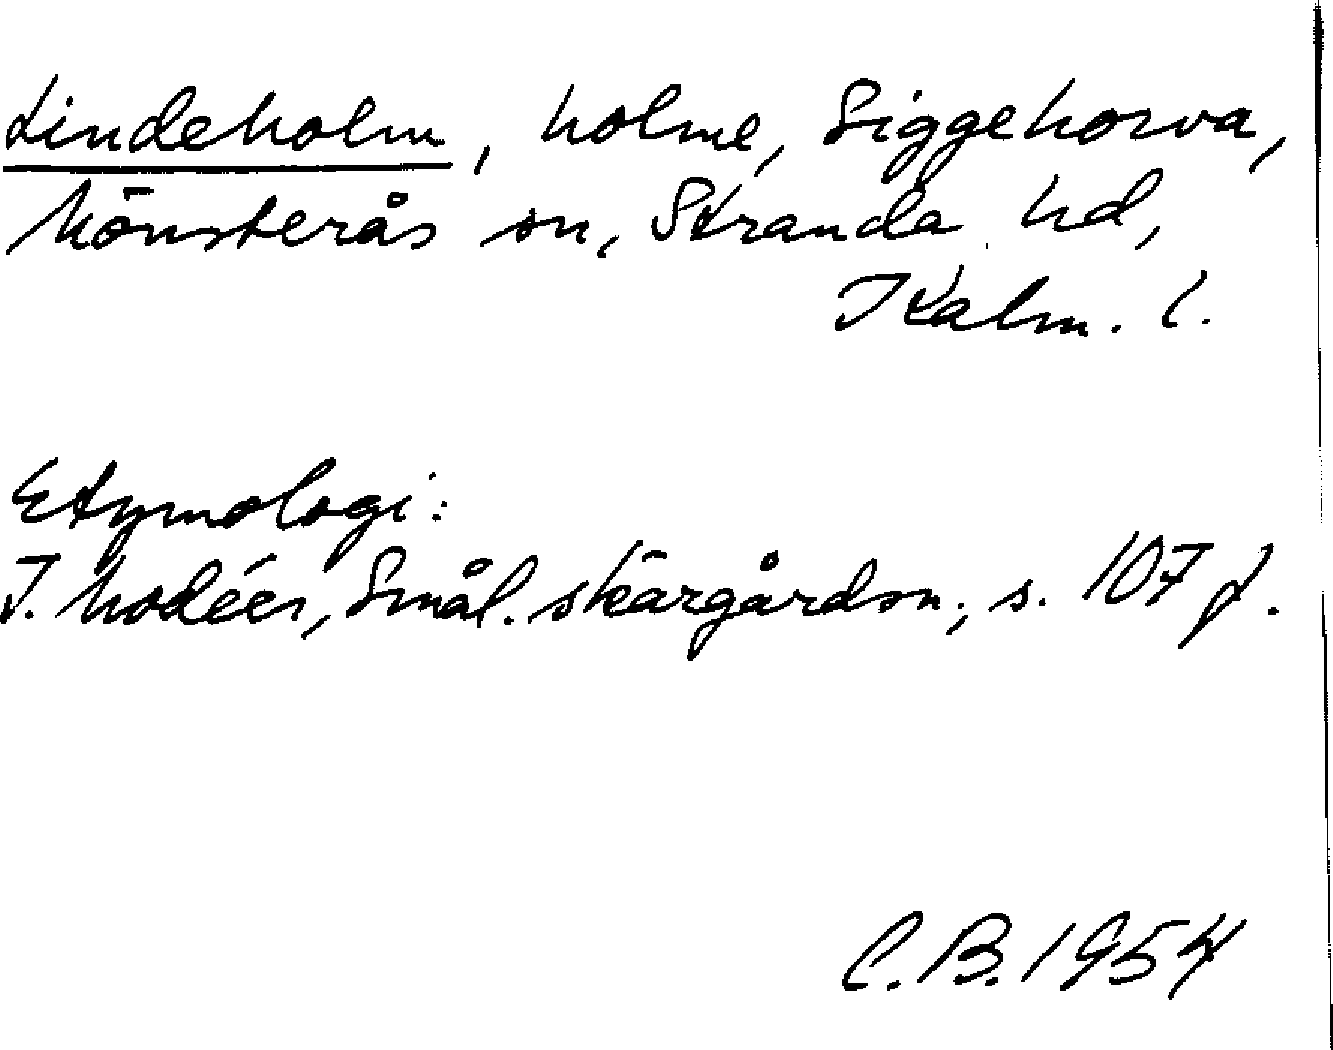 Lindeholm, holme, Siggehorva,
Mönsterås sn, Stranda hd,
Kalm. l.
Etymologi:
I. Modéer, Smål. skärgårdsn., s. 107 f.
C.B. 1954